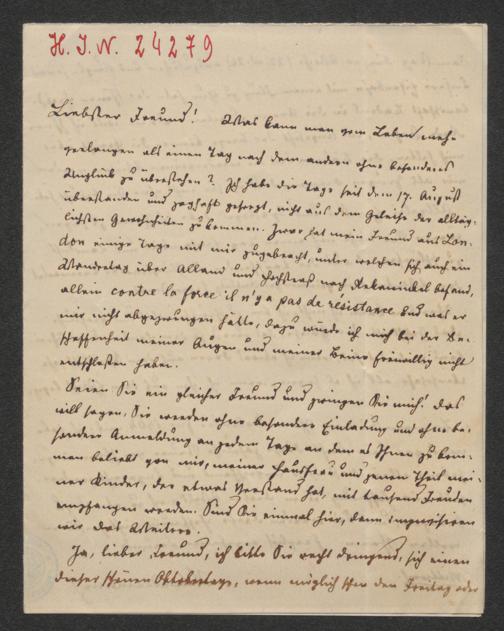 H. I. N. 24279
Liebster Freund! Was kann man vom Leben mehr
verlangen als einen Tag nach dem andern ohne besonderes
Unglück zu überstehen? Ich habe die Tage seit dem 17. August
überstanden und zaghaft gesorgt, nicht aus dem Geleise der alltäg-
lichsten Gewohnheiten zu kommen. Zwar hat mein Freund aus Lon-
don einige Tage mit mir zugebracht, unter welchen sich auch ein
Wandertag über Alland und Hochstraß nach Rekawinkel befand,
allein contre la force il n'y a pas de résistance. Und was er
mir nicht abgezwungen hätte, dazu würde ich mich bei der Be-
schaffenheit meiner Augen und meiner Beine freiwillig nicht
entschlossen haben.
Seien Sie ein gleicher Freund und zwingen Sie mich. Das
will sagen, Sie werden ohne besondere Einladung und ohne be-
sondere Anmeldung an jedem Tage an dem es Ihnen zu kom-
men beliebt von mir, meiner Hausfrau und jenem Theil mei-
ner Kinder, der etwas Verstand hat, mit tausend Freuden
empfangen werden. Sind Sie einmal hier, dann improvisiren
wir das Weitere.
Ja, lieber Freund, ich bitte Sie recht dringend, sich einen
dieser schönen Oktobertage, wenn möglich schon den Freitag oder